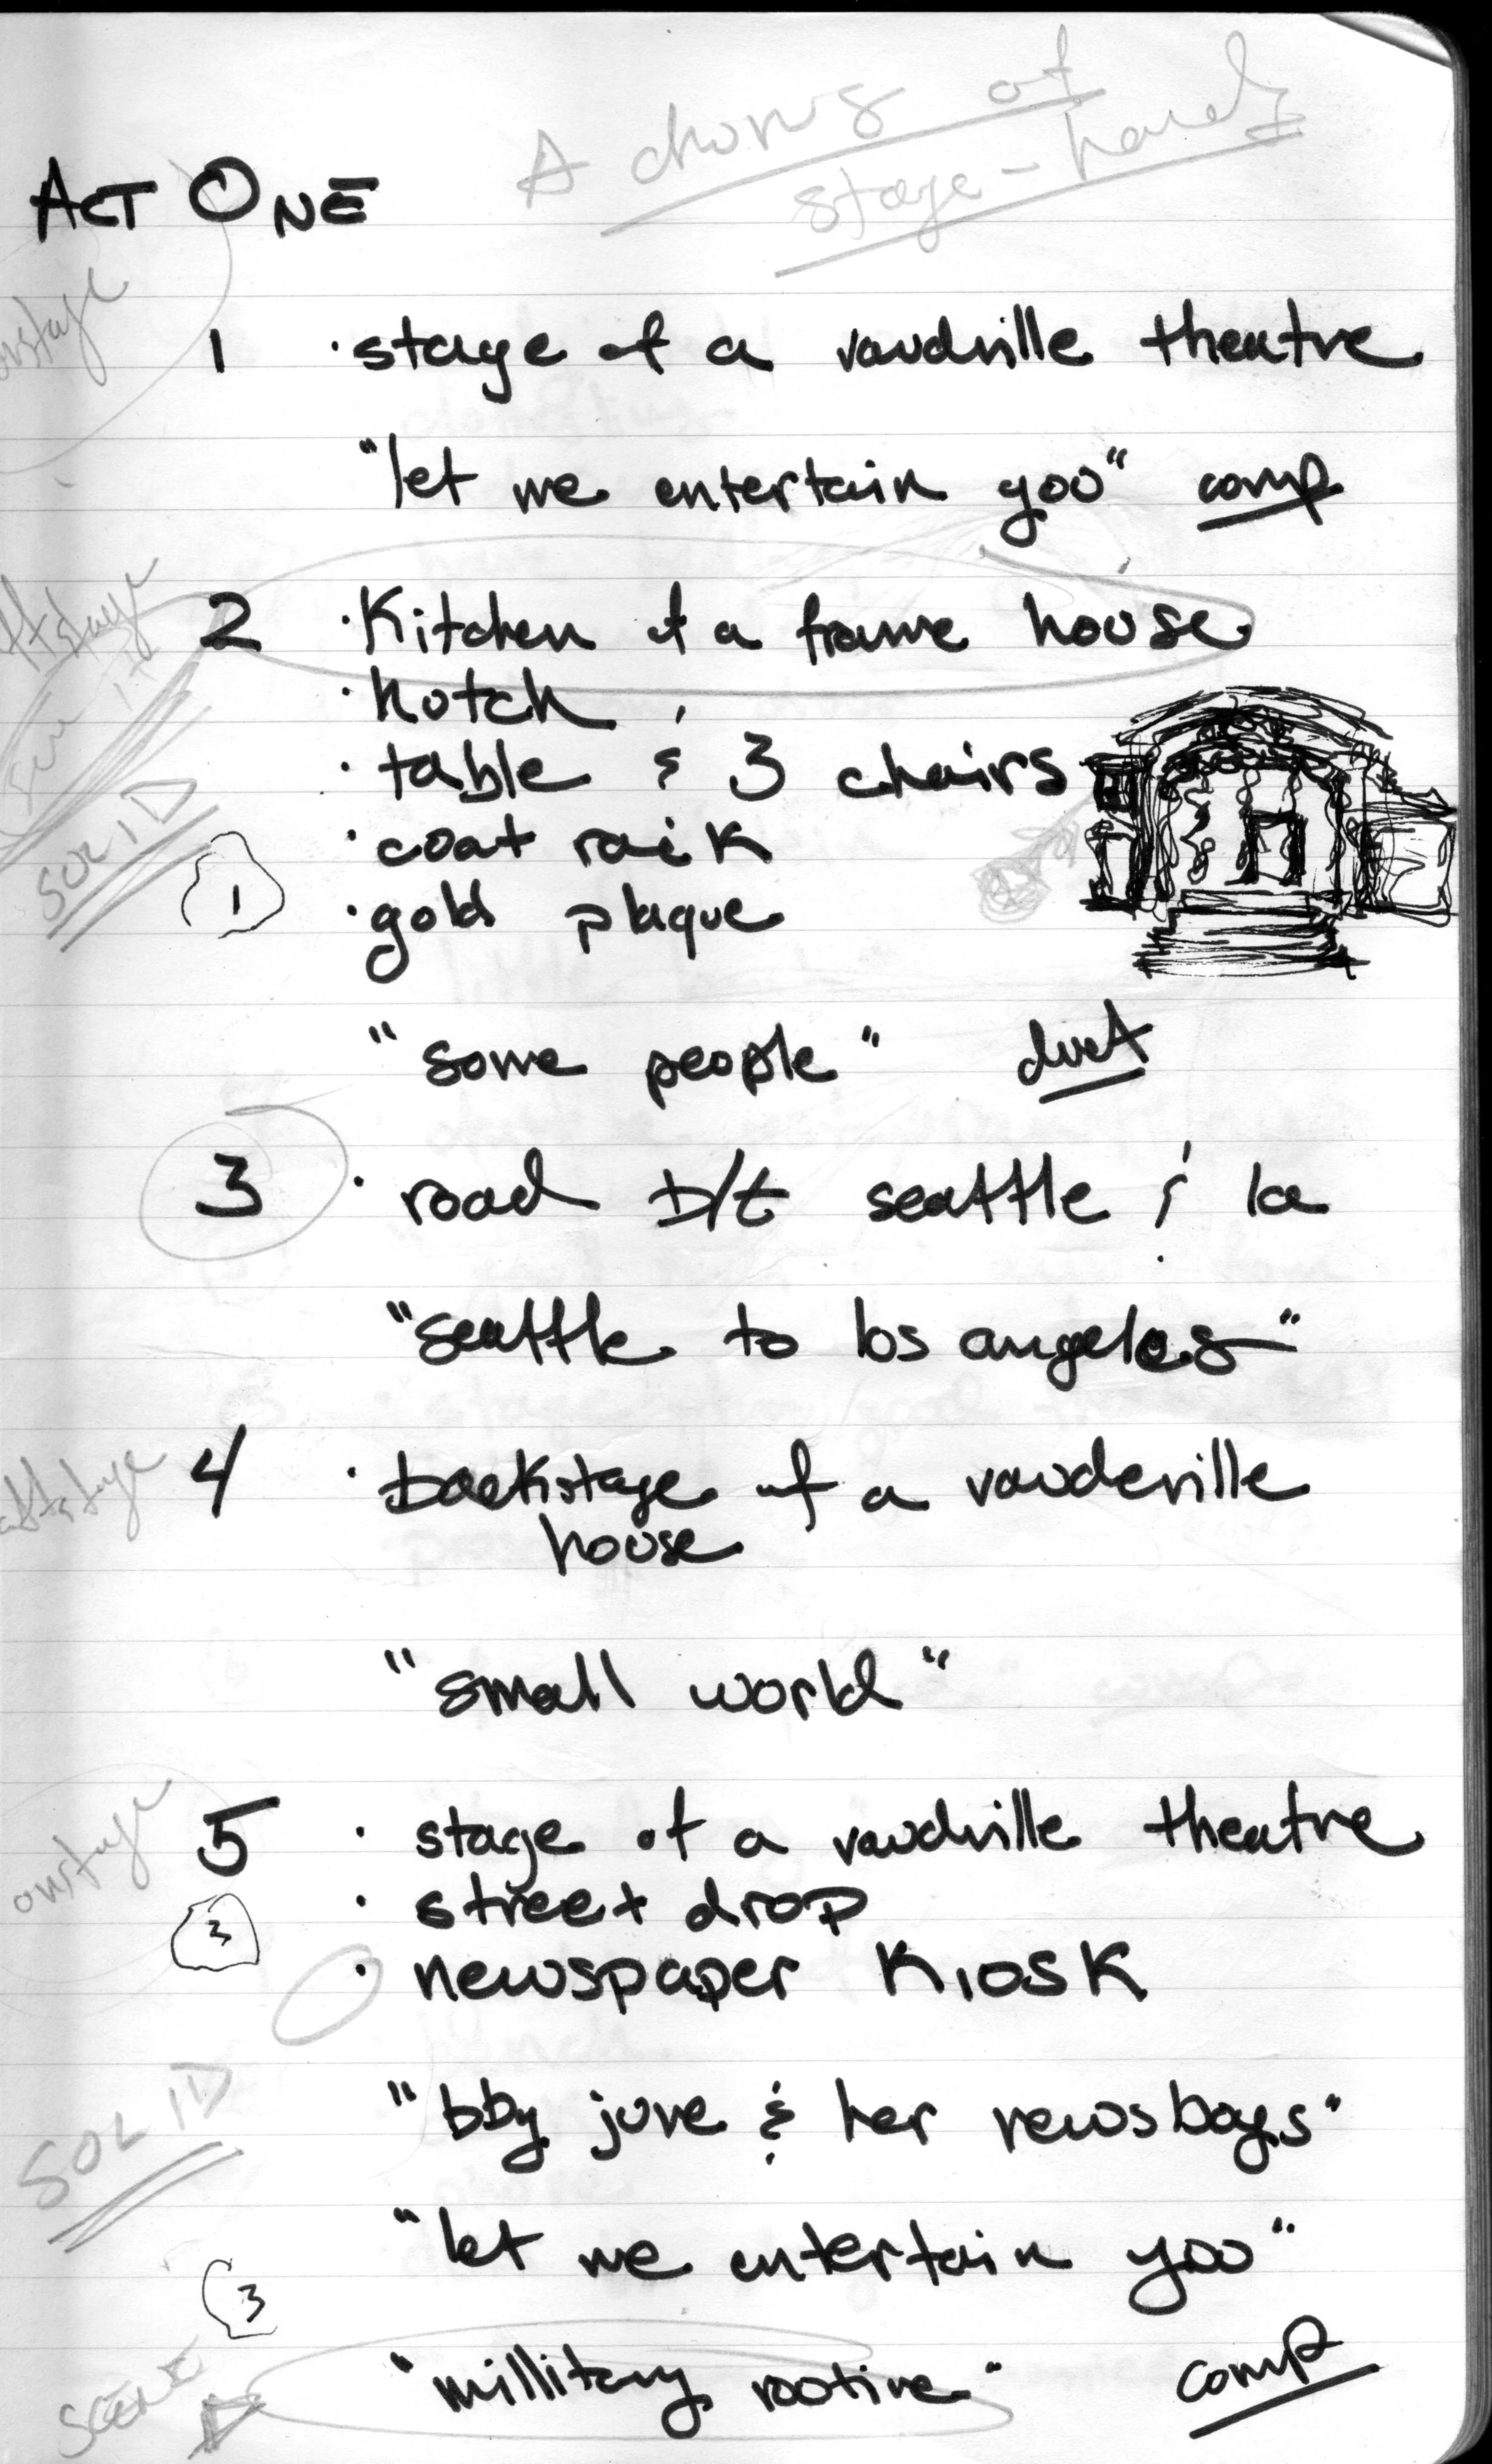 A chorus of
stage-hands
ACT ONE
onstage
1 · stage of a vaudville theatre
"let me entertain you" comp
offstage
2 · Kitchen of a frame house
· hutch
SOLID
· table & 3 chairs
· coat rack
1
· gold plaque
"some people" duet
3 · road b/t seattle & la
"seattle to los angeles"
offstage
4 · backstage of a vaudeville
house
"small world"
onstage
5 · stage of a vaudville theatre
· street drop
3
· newspaper KIOSK
SOLID
"bby june & her newsboys"
"let me entertain you"
3
SCENE
"millitary rootine" comp